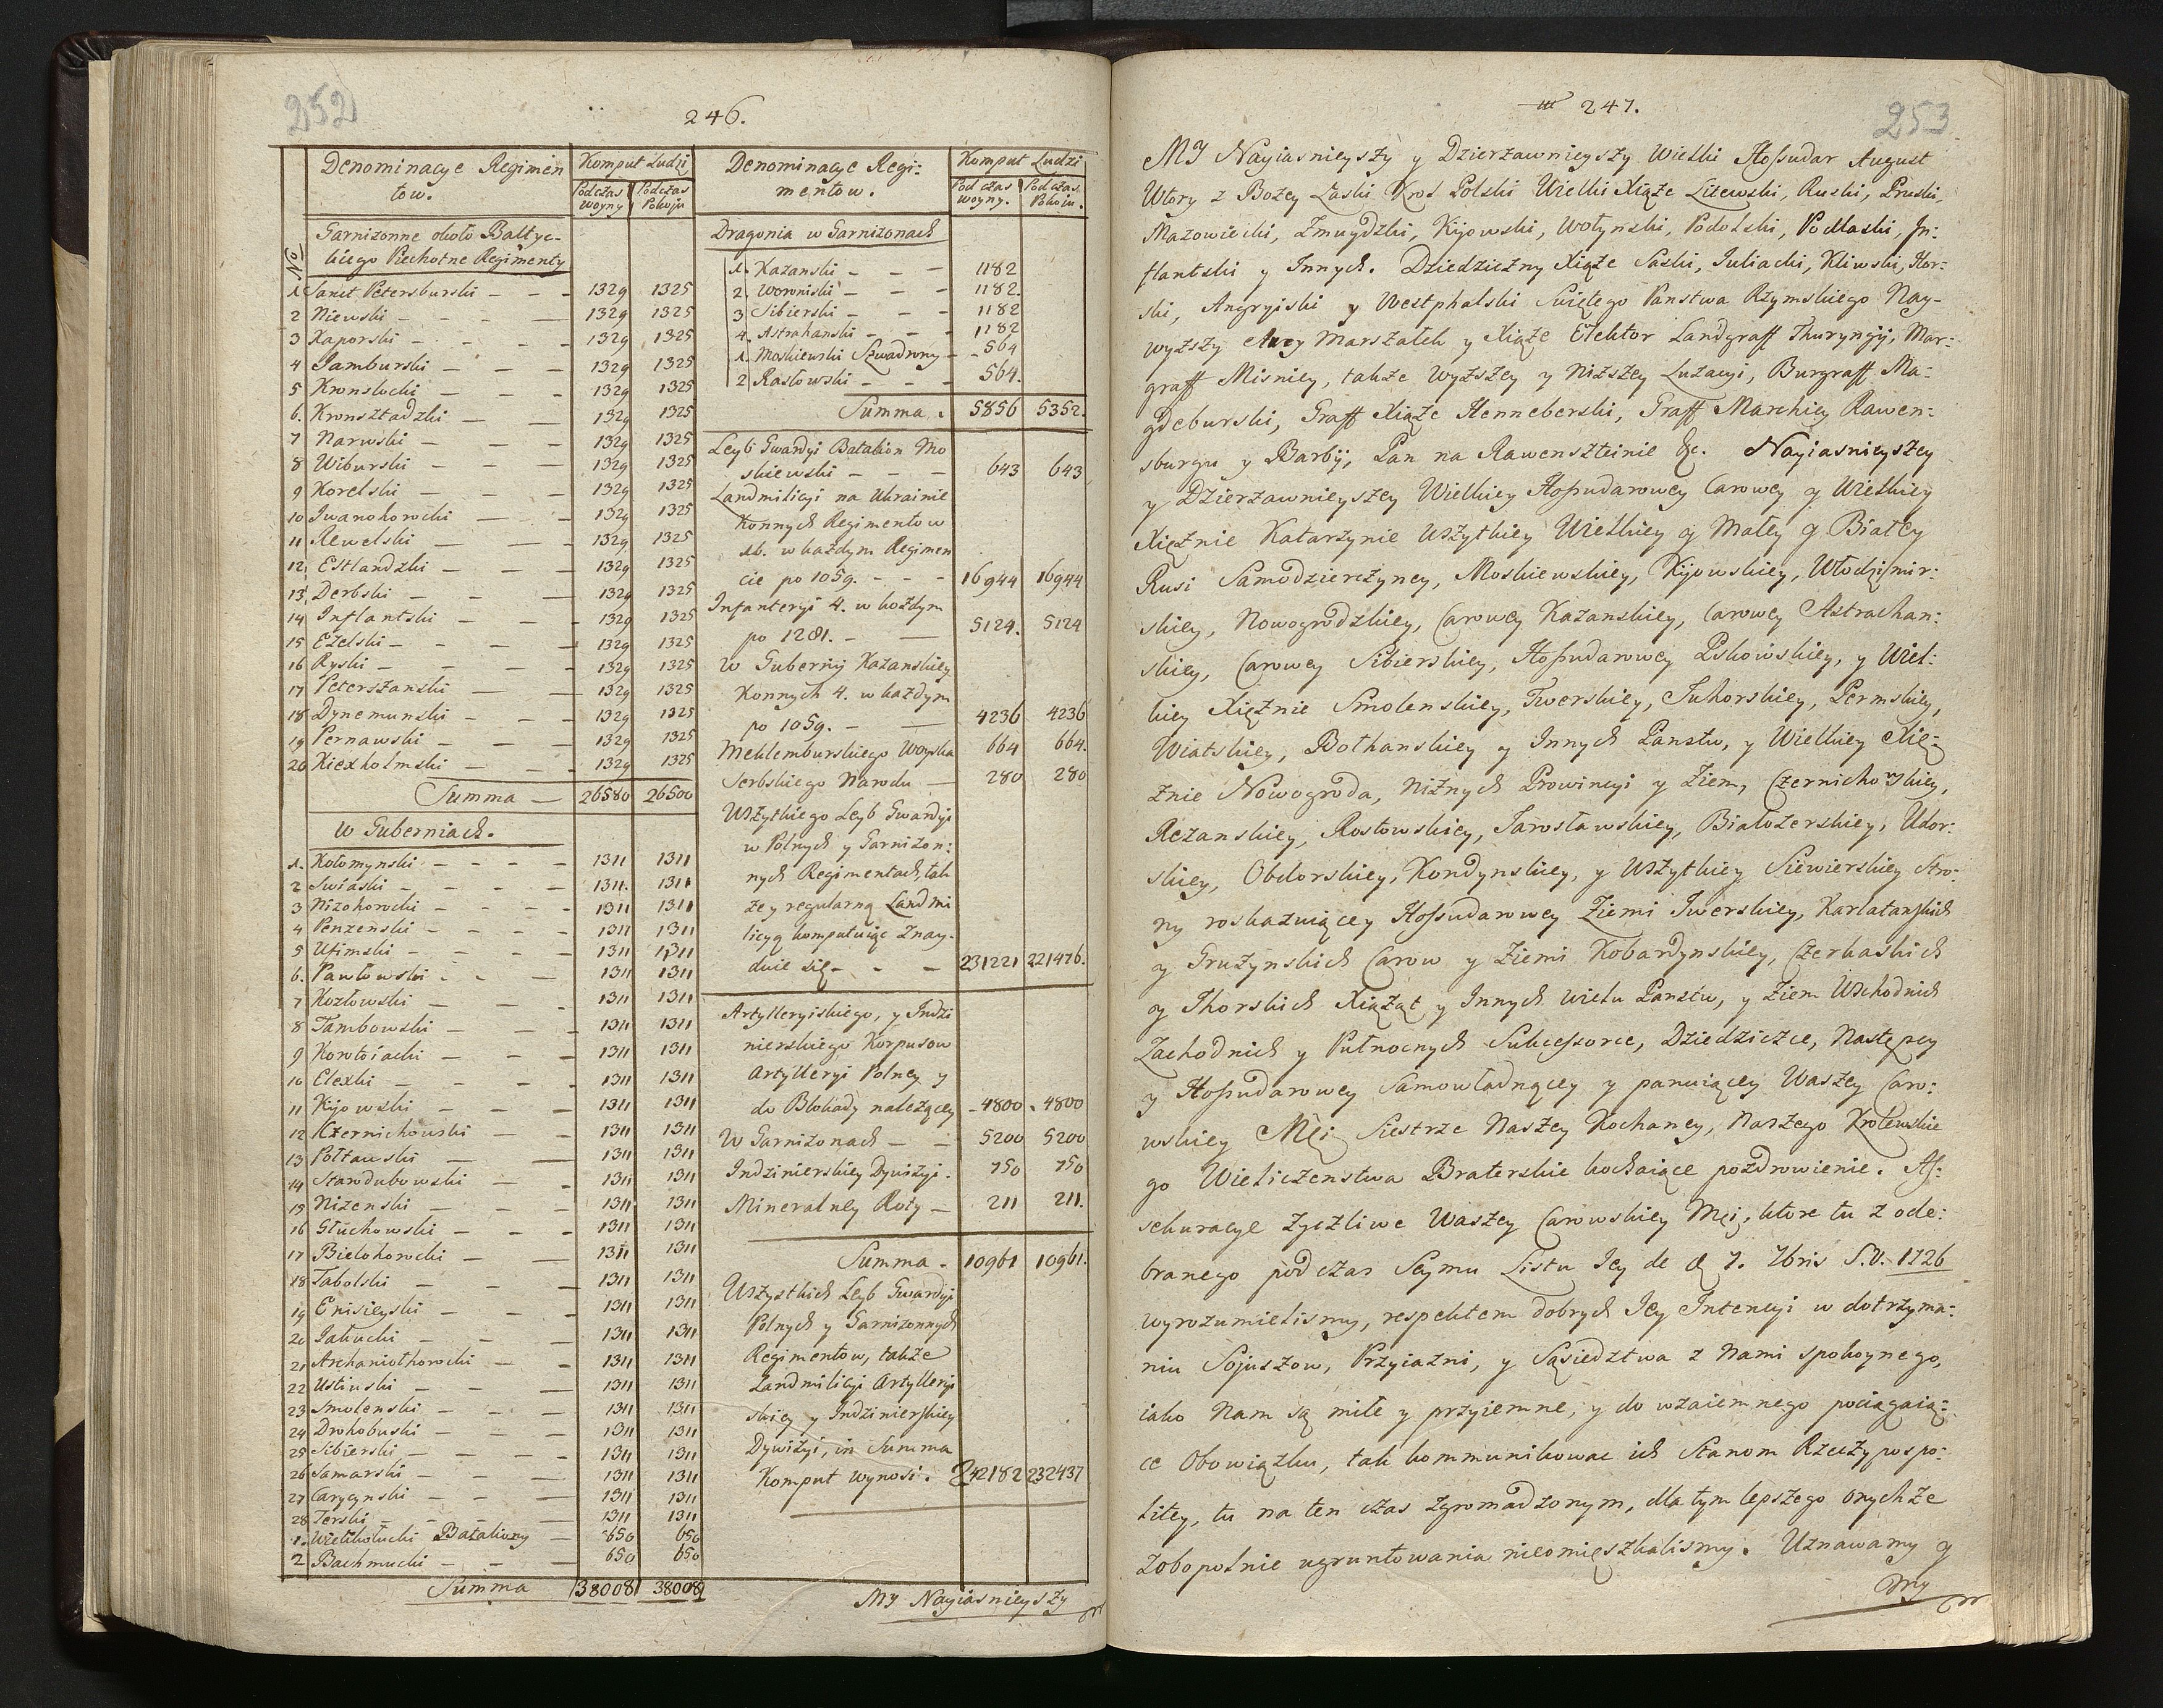 252
246.
Denominacye Regimen
tow.
Komput Ludzi
Podczas woyny
Podczas Pokoju
No
Garnizonne około Baltyc-
kiego Piechotne Regimenty
1 Sanct Petersburski - - - 1329 1325
2 Niewski - - - - 1329 1325
3 Kaporski - - - 1329 1325
4 Jamburski - - - 1329 1325
5 Kronslocki - - - 1329 1325
6. Kronsztadzki - - 1329 1325
7 Narwski - - - 1329 1325
8 Wiburski - - - 1329 1325
9 Korelski - - - 1329 1325
10 Iwanohorocki - - 1329 1325
11 Rewelski - - - 1329 1325
12 Estlandzki - - - 1329 1325
13 Derbski - - - 1329 1325
14 Inflantski - - - 1329 1325
15 Ezelski - - - - 1329 1325
16 Ryski - - - - 1329 1325
17 Peterszanski - - 1329 1325
18 Dynemunski - - - 1329 1325
19 Pernawski - - - 1329 1325
20 Kiexholmski - - - 1329 1325
Summa - 26580 26500
w Guberniach.
1. Kołomynski - - - - 1311 1311
2 Swiaski - - - - 1311. 1311
3 Nizohorocki - - - - 1311 1311
4 Penzenski - - - - 1311 1311
5 Ufimski - - - - 1311 1311
6. Pawłowski - - - 1311 1311
7 Kozłowski - - - 1311 1311
8 Tambowski - - - 1311 1311
9 Korotoiacki - - - 1311 1311
10 Elexki - - - - 1311 1311
11 Kijowski - - - 1311 1311
12 Czernichowski - - 1311 1311
13 Połtawski - - 1311 1311
14 Starodubowski - - 1311 1311
15 Nizenski - - - 1311 1311
16 Głuchowski - - - 1311 1311
17 Biełohorocki - - 1311 1311
18 Tabolski - - - 1311 1311
19 Enisieyski - - - 1311 1311
20 Jakucki - - - 1311 1311
21 Archaniothorocki - - 1311 1311
22 Ustiuski - - - 1311 1311
23 Smolenski - - - 1311 1311
24 Drohobuski - - - 1311 1311
25 Sibierski - - - - 1311 1311
26 Samarski - - - 1311 1311
27 Carycynski - - - 1311 1311
28 Terski - - - - 1311 1311
1. Wielkołucki Bataliony - 650 650
2 Bachmucki - - - 650 650
Summa 38008 38008
Denominacye Regi-
mentow.
Komput Ludzi
Podczas woyny.
Podczas Pokoiu.
Dragonia w Garnizonach
1. Kazanski - - - 1182
2. Woroniski - - - 1182
3 Sibierski - - - 1182
4. Astrahanski - - - 1182
1. Moskiewski Szwadrony - 564
2 Rasłowski - - - 564.
Summa. 5856 5352.
Leyb Gwardyi Batalion Mo
skiewski - - - 643 643
Landmilicyi na Ukrainie
Konnych Regimentow
16. w każdym Regimen
cie po 1059. - - - 16944 16944
Infanteryi 4. w każdym
po 1281. - - 5124. 5124
w Gubernij Kazanskiey
Konnych 4. w każdym
po 1059. - - 4236 4236
Meklemburskiego Woyska 664 664.
Serbskiego Narodu - 280 280
Wszytkiego Leyb Gwardyi
w Polnych y Garnizon:
nych Regimentach, tak
że y regularną Landmi
licyą komputuiąc znay-
duie się - - - 231221 221476.
Artylleryiskiego, y Indzi
nierskiego Korpusow
Artylleryi Polney y
do Blokady należącey - 4800 4800
W Garnizonach - - 5200 5200
Indzinierskiey Dywizyi. 750 750
Mineralney Roty - 211 211.
Summa. 10961 10961.
Wszystkich Leyb Gwardyi
Polnych y Garnizonnych
Regimentow, także
Landmilicyi Artylleryi
skiey y Indzinierskiey
Dywizyi, in Summa
Komput wynosi. 242182 232437
MY Nayiasnieyszy
247.
253
MY Nayiasnieyszy y Dzierzawnieyszy Wielki Hossudar August
Wtory z Bożey Łaski Krol Polski Wielki Xiąże Litewski, Ruski, Pruski,
Mazowiecki, Zmuydzki, Kijowski, Wołynski, Podolski, Podlaski, In:
flantski y Innych. Dziedziczny Xiąże Saski, Juliacki, Kliwski, Hor:
ski, Angryiski y Westphalski Swiętego Panstwa Rzymskiego Nay-
wyższy Arcy Marszałek y Xiąże Elektor Landgraff Thuryngij, Mar:
graff Misniey, także Wyższey y Niższey Luzacyi, Burgraff Ma:
gdeburski, Graff Xiąże Henneberski, Graff Marchiey Rawen:
sburgu y Barbij, Pan na Rawensteinie &c. Nayiasnieyszey
y Dzierzawnieyszey Wielkiey Hossudarowey Carowey y Wielkiey
Xiężnie Katarzynie Wszytkiey Wielkiey y Małey y Białey
Rusi Samodzierżyney, Moskiewskiey, Kijowskiey, Włodzimir:
skiey, Nowogrodzkiey, Carowey Kazanskiey, Carowey Astrachan:
skiey, Carowey Sibierskiey, Hossudarowey Pskowskiey, y Wiel:
kiey Xiężnie Smolenskiey, Twerskiey, Juhorskiey, Permskiey,
Wiatskiey, Bolhanskiey y Innych Panstw, y Wielkiey Xię-
żnie Nowogroda, Niżnych Prowincyi y Ziem, Czernichowskiey,
Rezanskiey, Rostowskiey, Jarosławskiey, Białozerskiey, Udor:
skiey, Obdorskiey, Kondynskiey, y Wszytkiey Siewierskiey Stro:
ny roskazuiącey Hossudarowey Ziemi Iwerskiey, Kartalanskich
y Gruzynskich Carow y Ziemi Kobardynskiey, Czerkaskich
y Thorskich Xiążąt y Innych wielu Panstw, y Ziem Wschodnich
Zachodnich y Pułnocnych Sukcessorce, Dziedziczce, Następcy
y Hossudarowey Samowładnącey y panuiącey Waszey Caro:
wskiey Mci Siestrze Naszey Kochaney, Naszego Krolewskie
go Wieliczenstwa Braterskie kochaiące pozdrowienie. As:
sekuracye życzliwe Waszey Carowskiey Mci, ktore tu z ode:
branego podczas Seymu Listu Jey de d 7. 7bris S.V. 1726
wyrozumielismy, respektem dobrych Jey Intencyi w dotrzyma:
niu Sojuszow, Przyiazni, y Sąsiedztwa z Nami spokoynego,
iako Nam są miłe y przyiemne, y do wzaiemnego pociągaią:
ce Obowiązku, tak kommunikowac ich Stanom Rzeczypospo:
litey, tu na ten czas zgromadzonym, dla tym lepszego onychże
zobopolnie ugruntowania nieomięszkalismy. Uznawamy y
my